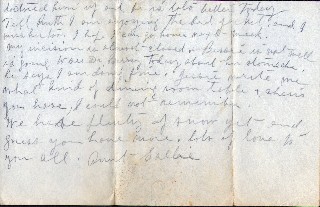 him up and he is lots better today
I am enjoying the bed jacket, and I
I hope I can go home next week.
my incision is almost closed & Bessie is not well
so going to see Dr. today about her stomach.
he says I am doing fine. write me
what kind of dining room table & chairs
you have, I could not remember.
We have plenty of snow yet and
guess you have more. lots of love to
you all. Aunt Sallie